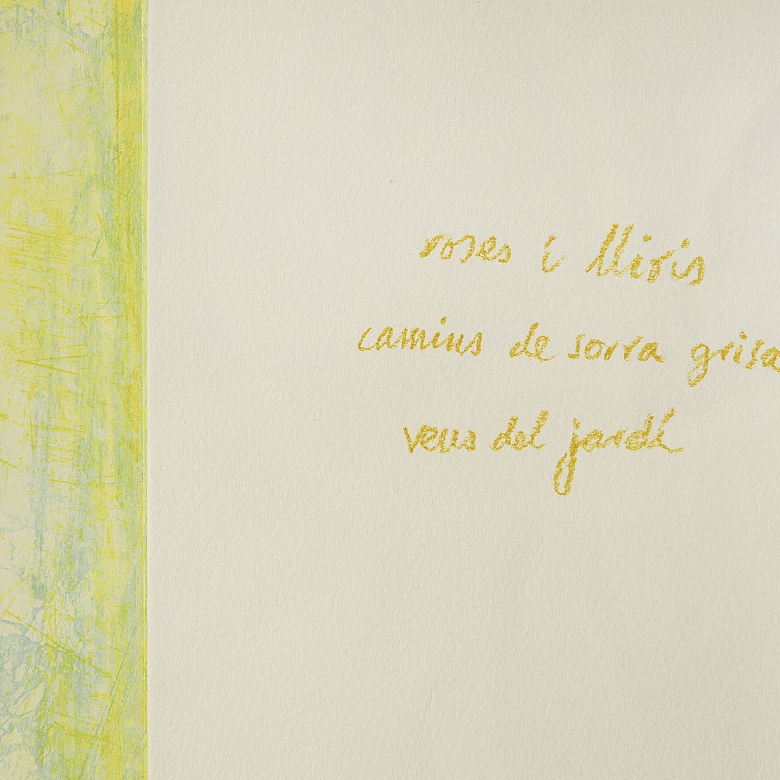 roses i lliris
camins de sorra grisa
veus del jardí